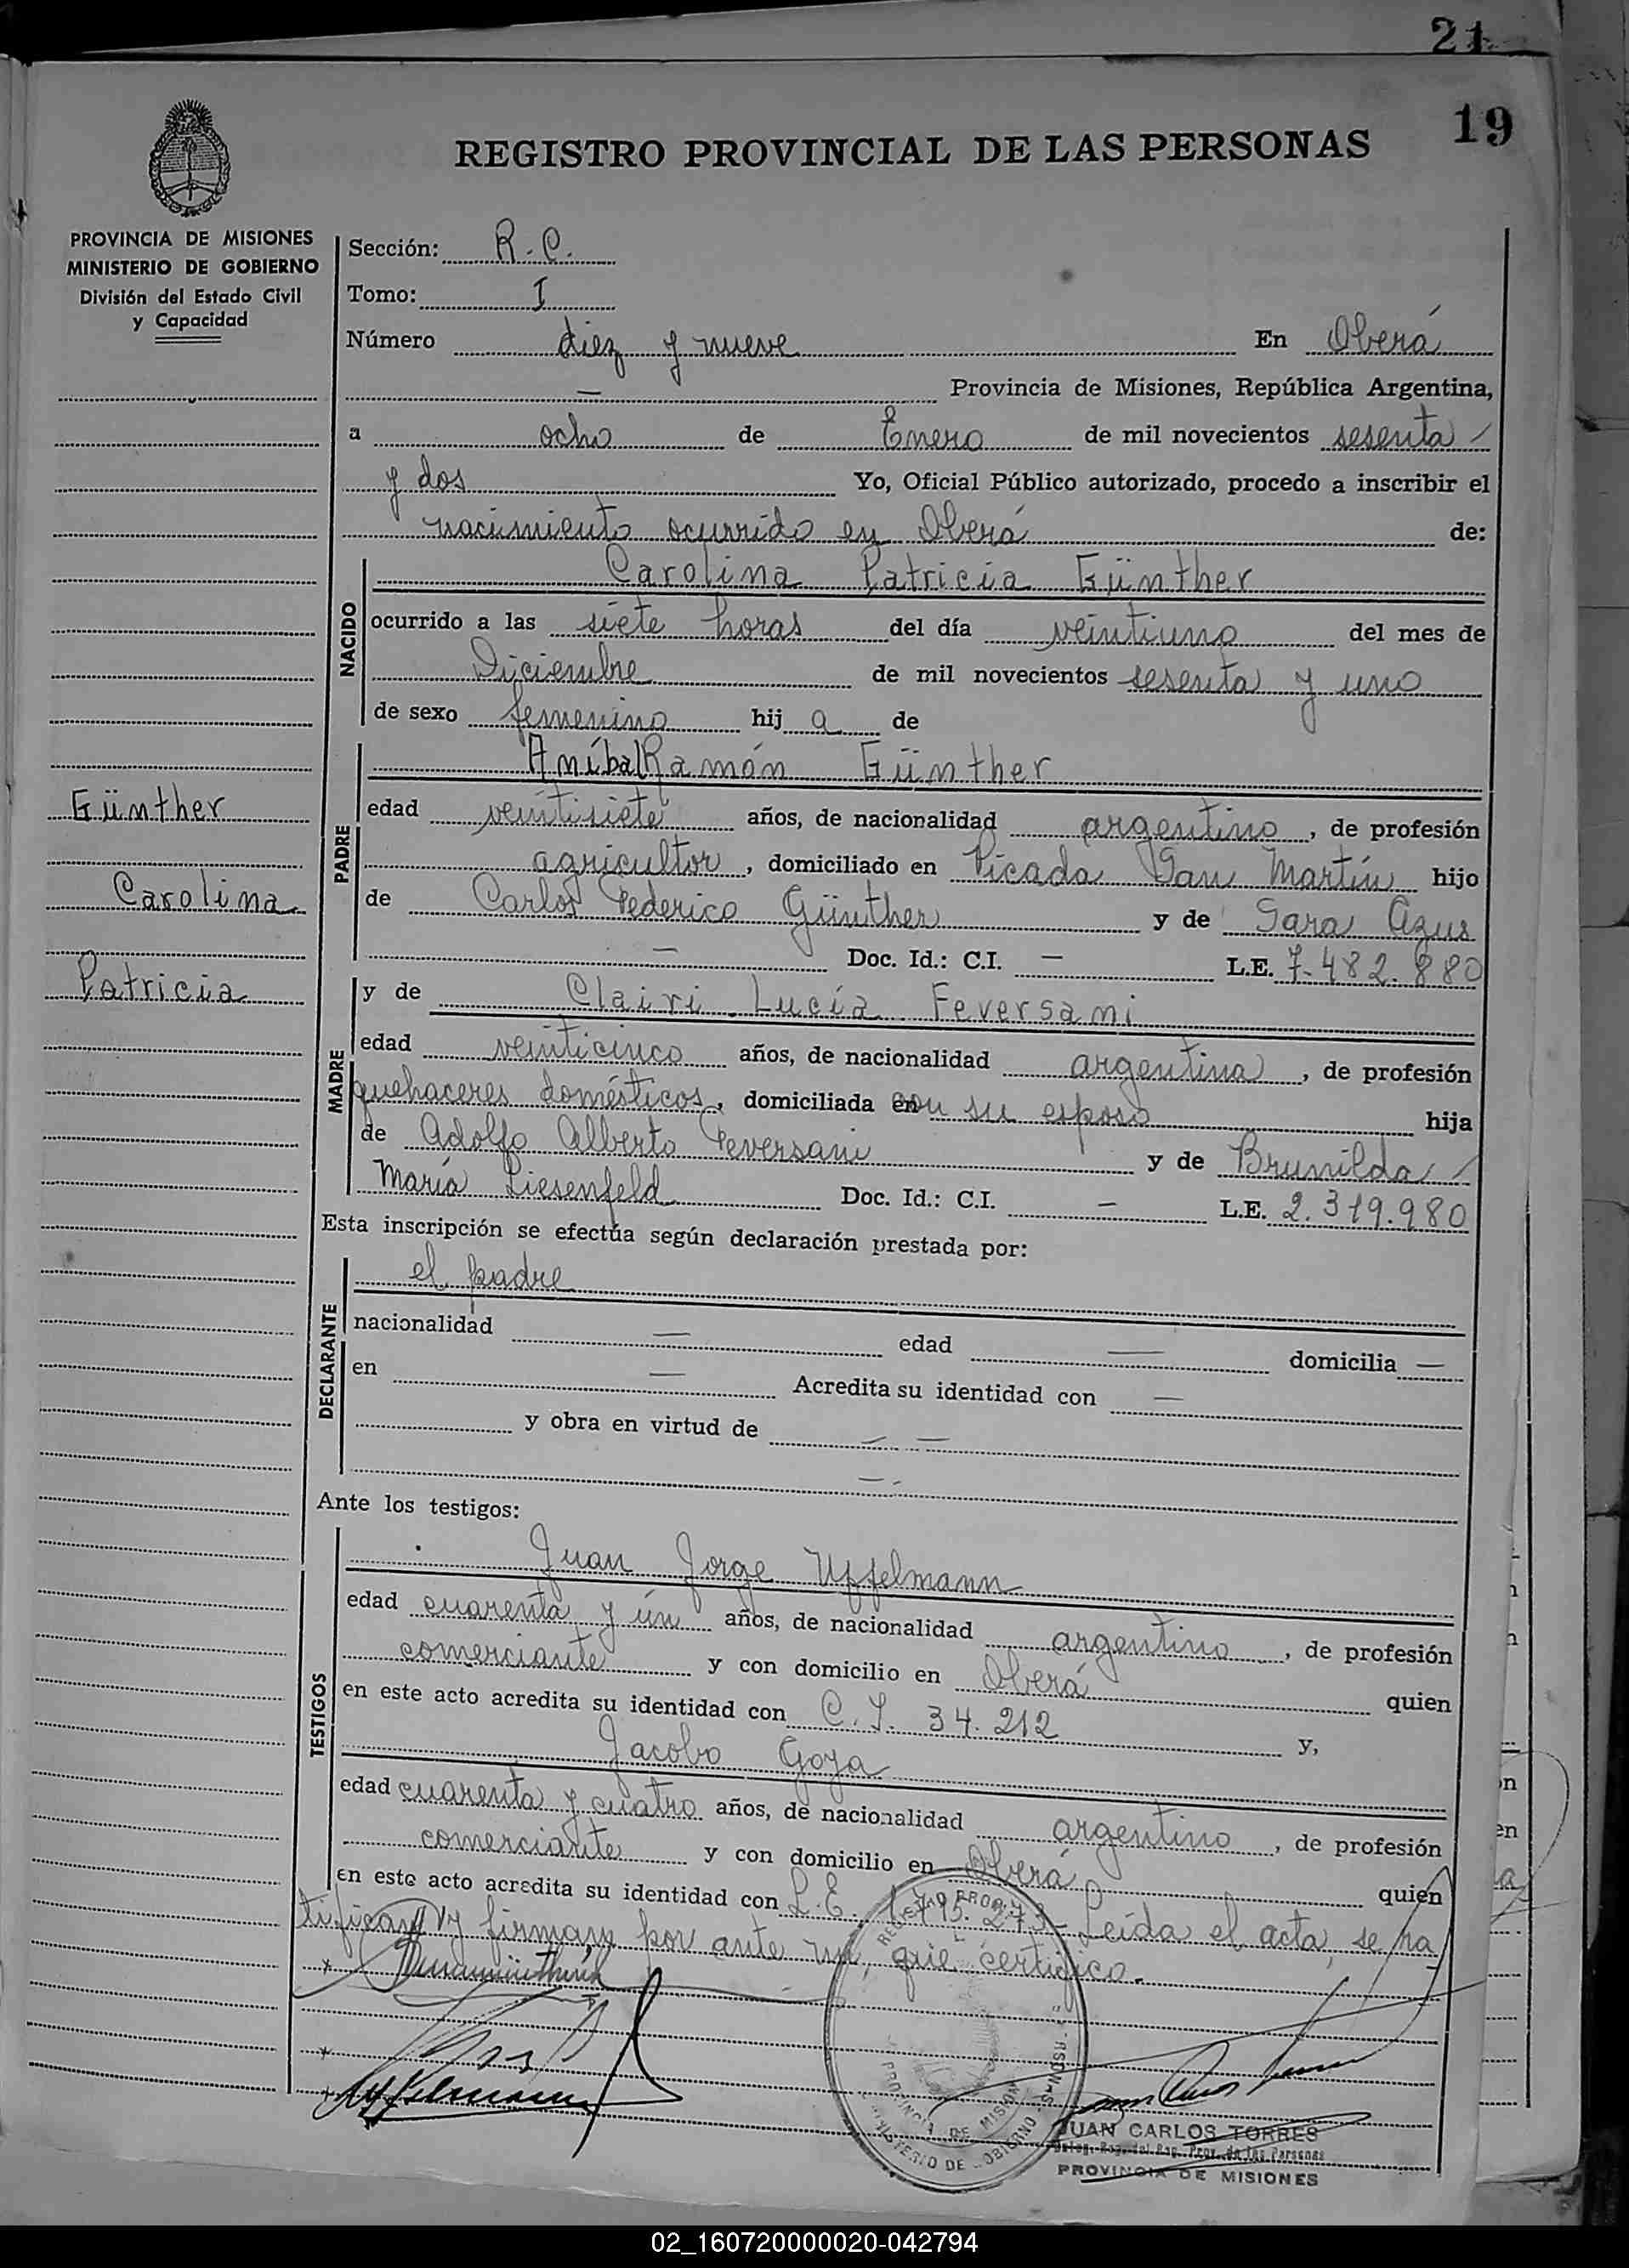 21
19
REGISTRO PROVINCIAL DE LAS PERSONAS
PROVINCIA DE MISIONES
MINISTERIO DE GOBIERNO
División del Estado Civil
y Capacidad
Sección: R.C.
Tomo: I
Número diez y nueve En Oberá
— Provincia de Misiones, República Argentina,
a ocho de Enero de mil novecientos sesenta
y dos Yo, Oficial Público autorizado, procedo a inscribir el
nacimiento ocurrido en Oberá de:
NACIDO
Carolina Patricia Günther
ocurrido a las siete horas del día veintiuno del mes de
Diciembre de mil novecientos sesenta y uno
de sexo femenino hij a de
PADRE
Aníbal Ramón Günther
edad veintisiete años, de nacionalidad argentino, de profesión
agricultor, domiciliado en Picada San Martín hijo
de Carlos Federico Günther y de Sara Azus
— Doc. Id.: C.I. — L.E. 7.482.880
Günther
Carolina
Patricia
MADRE
y de Clairi Lucía Feversani
edad veinticinco años, de nacionalidad argentina, de profesión
quehaceres domésticos, domiciliada en con su esposo hija
de Adolfo Alberto Feversani y de Brunilda
María Liesenfeld Doc. Id.: C.I. — L.E. 2.319.980
Esta inscripción se efectúa según declaración prestada por:
DECLARANTE
el padre
nacionalidad — edad — domicilia —
en — Acredita su identidad con —
y obra en virtud de — —
—
Ante los testigos:
TESTIGOS
Juan Jorge Uffelmann
edad cuarenta y ún años, de nacionalidad argentino, de profesión
comerciante y con domicilio en Oberá quien
en este acto acredita su identidad con C.I. 34.212 y,
Jacobo Goya
edad cuarenta y cuatro años, de nacionalidad argentino, de profesión
comerciante y con domicilio en Oberá quien
en este acto acredita su identidad con L.E. Leída el acta, se ra
tifican y firman por ante mí, que certifico.
Uffelmann
JUAN CARLOS TORRES
PROVINCIA DE MISIONES
02_160720000020-042794